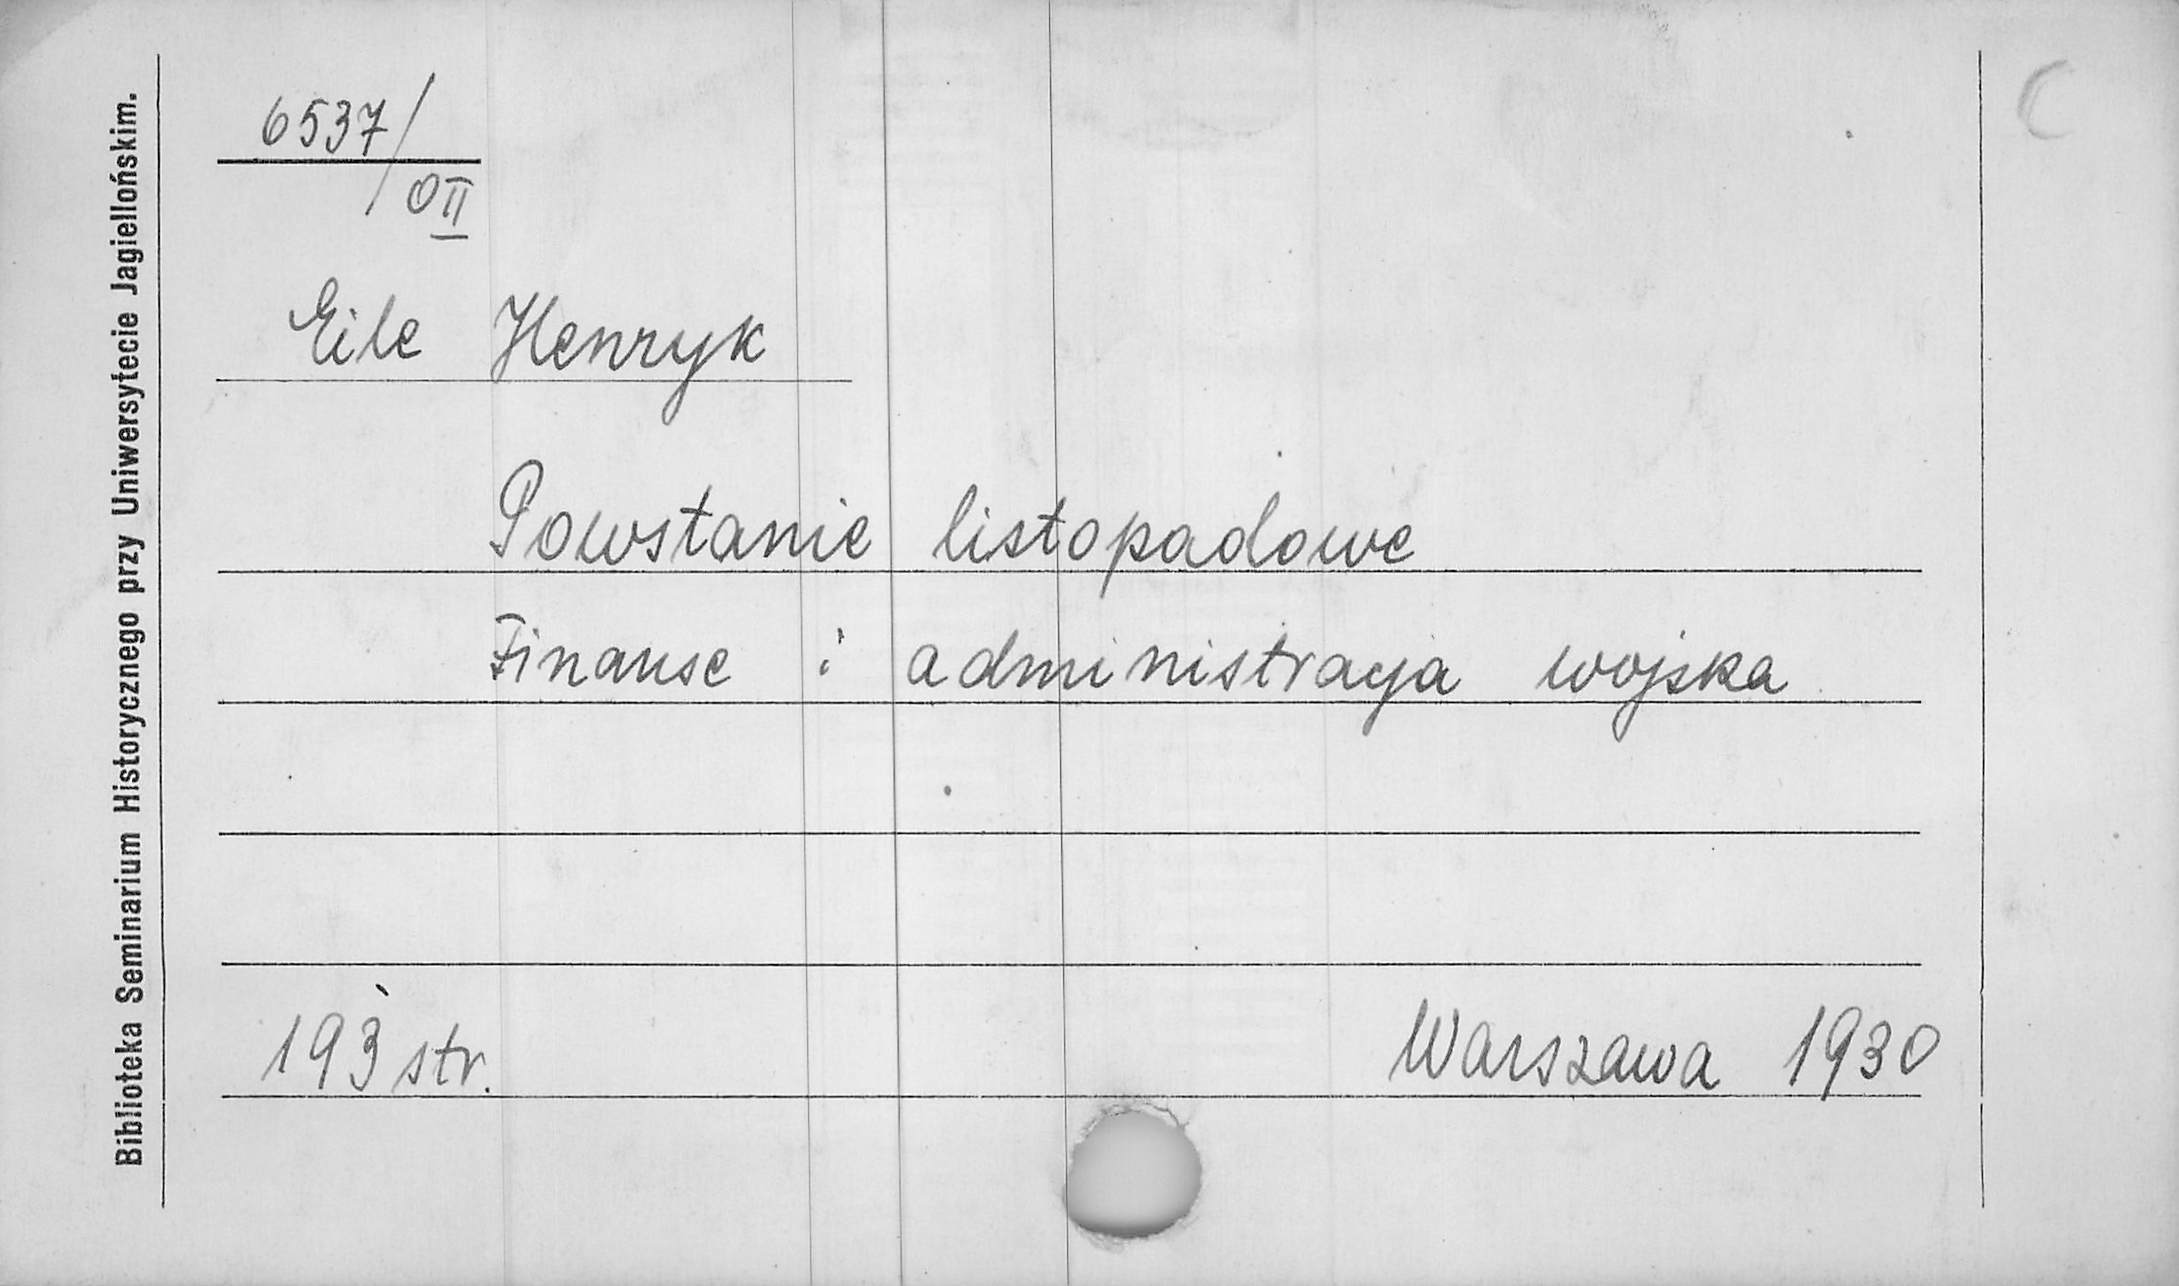 Biblioteka Seminarium Historycznego przy Uniwersytecie Jagiellońskim.
6537/
OII
Eile Henryk
Powstanie listopadowe
Finanse i administracja wojska
193 str.
Warszawa 1930
C